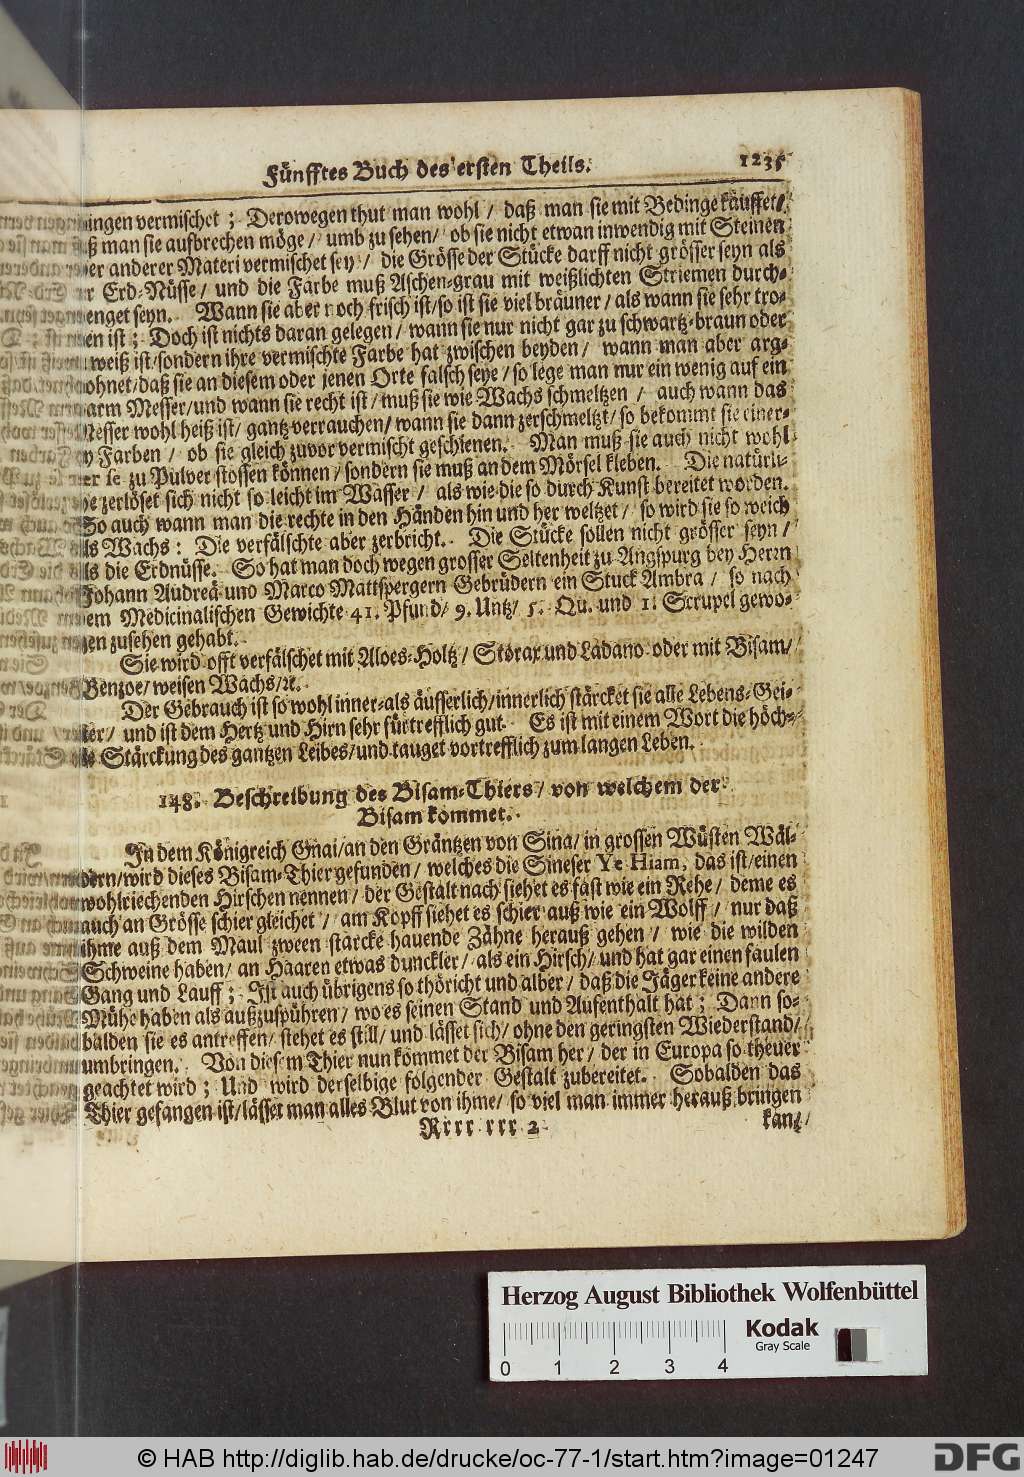 Fünfftes Buch des ersten Theils. 1235
ningen vermischet; Derowegen thut man wohl / daß man sie mit Bedinge käuffet /
ß man sie aufbrechen möge / umb zu sehen / ob sie nicht etwan inwendig mit Steinen
er anderer Materi vermischet sey / die Grösse der Stücke darff nicht grösser seyn als
r Erd-Nüsse / und die Farbe muß Aschen-grau mit weißlichten Striemen durch-
enget seyn. Wann sie aber noch frisch ist / so ist sie viel bräuner / als wann sie sehr tro-
en ist; Doch ist nichts daran gelegen / wann sie nur nicht gar zu schwartz-braun oder
weiß ist / sondern ihre vermischte Farbe hat zwischen beyden / wann man aber arg-
ohnet / daß sie an diesem oder jenen Orte falsch seye / so lege man nur ein wenig auf ein
arm Messer / und wann sie recht ist / muß sie wie Wachs schmeltzen / auch wann das
Messer wohl heiß ist / gantz verrauchen / wann sie dann zerschmeltzt / so bekommt sie einer-
y Farben / ob sie gleich zuvor vermischt geschienen. Man muß sie auch nicht wohl
zu Pulver stossen können / sondern sie muß an dem Mörsel kleben. Die natürli-
he zerlöset sich nicht so leicht im Wasser / als wie die so durch Kunst bereitet worden.
So auch wann man die rechte in den Händen hin und her weltzet / so wird sie so weich
ls Wachs: Die verfälschte aber zerbricht. Die Stücke sollen nicht grösser seyn /
ls die Erdnüsse. So hat man doch wegen grosser Seltenheit zu Augspurg bey Herrn
Johann Andreä und Marco Mattspergern Gebrüdern ein Stuck Ambra / so nach
em Medicinalischen Gewichte 41. Pfund / 9. Untz / 5. Qu. und 1. Scrupel gewo-
zen zusehen gehabt.
Sie wird offt verfälschet mit Aloes-Holtz / Storax und Ladano oder mit Bisam /
Benzoe / weisen Wachs / ꝛc.
Der Gebrauch ist so wohl inner- als äusserlich / innerlich stärcket sie alle Lebens-Gei-
ster / und ist dem Hertz und Hirn sehr fürtrefflich gut. Es ist mit einem Wort die höch-
ste Stärckung des gantzen Leibes / und tauget vortrefflich zum langen Leben.
148. Beschreibung des Bisam-Thiers / von welchem der
Bisam kommet.
In dem Königreich Gnai / an den Gräntzen von Sina / in grossen Wüsten Wäl-
dern / wird dieses Bisam-Thier gefunden / welches die Sineser Ye Hiam, das ist / einen
wohlriechenden Hirschen nennen / der Gestalt nach siehet es fast wie ein Rehe / deme es
auch an Grösse schier gleichet / am Kopff siehet es schier auß wie ein Wolff / nur daß
ihme auß dem Maul zween starcke hauende Zähne herauß gehen / wie die wilden
Schweine haben / an Haaren etwas dunckler / als ein Hirsch / und hat gar einen faulen
Gang und Lauff; Ist auch übrigens so thöricht und alber / daß die Jäger keine andere
Mühe haben als außzuspühren / wo es seinen Stand und Aufenthalt hat; Dann so-
balden sie es antreffen / stehet es still / und lässet sich / ohne den geringsten Wiederstand /
umbringen. Von diesem Thier nun kommet der Bisam her / der in Europa so theuer
geachtet wird; Und wird derselbige folgender Gestalt zubereitet. Sobalden das
Thier gefangen ist / lässet man alles Blut von ihme / so viel man immer herauß bringen
Rrrr rrr 2 kan /
Herzog August Bibliothek Wolfenbüttel
Kodak
Gray Scale
0 1 2 3 4
© HAB http://diglib.hab.de/drucke/oc-77-1/start.htm?image=01247
DFG